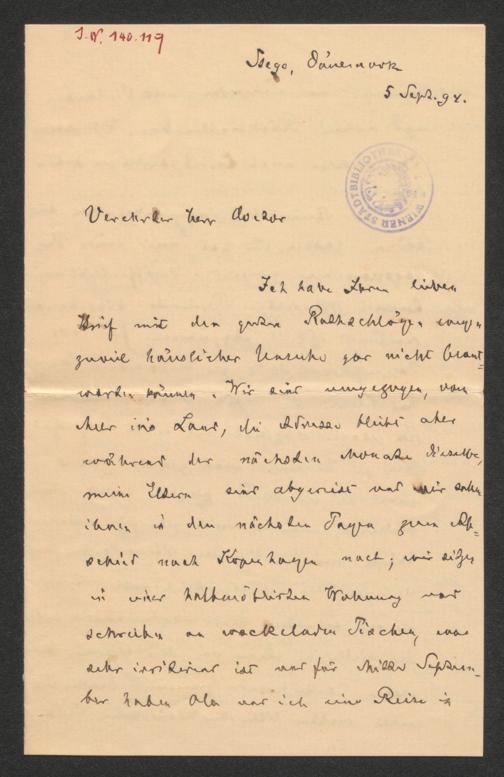 I.N. 140.119
Dänemark
5 Sept. 94.
WIENER STADTBIBLIOTHEK
Verehrter Herr Doctor
Ich habe Ihren lieben
Brief mit den guten Rathschlägen wegen
zuviel häuslicher Unruhe gar nicht beant-
worten können. Wir sind umgezogen, vom
Meer ins Land, die Adresse bleibt aber
während der nächsten Monate dieselbe,
meine Eltern sind abgereist und wir
ihnen in den nächsten Tagen zum Ab-
schied nach Kopenhagen nach; wir sitzen
in einer halbmöblirten Wohnung und
schreiben an wackelnden Tischen, was
sehr irritirend ist und für Mitte Septem-
ber haben Ola und ich eine Reise in